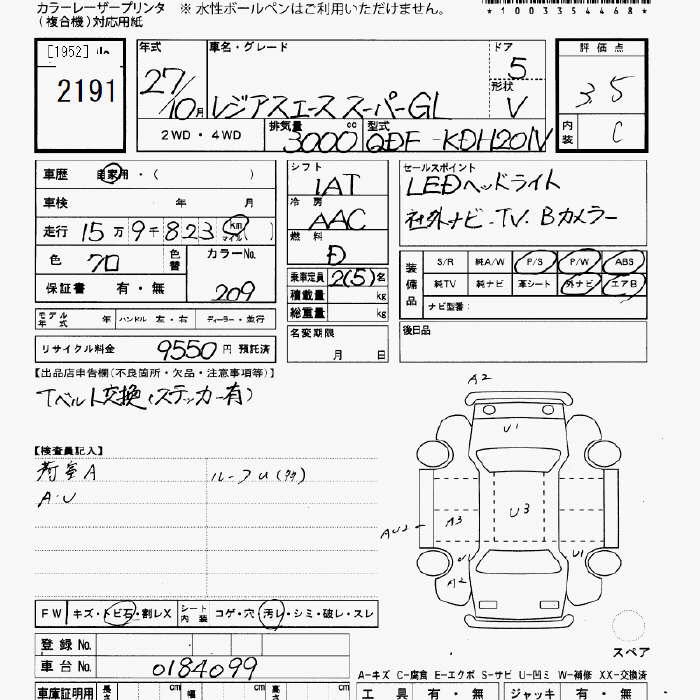 カラーレーザープリンタ ※ 水性ボールペンはご利用いただけません。
(複合機)対応用紙
*1003354468*
[1952]
2191
年式 27/10月
車名・グレード レジアスエース スーパーGL
ドア 5
形状 V
評価点 3.5
内装 C
2WD・4WD 排気量 3000 cc 型式 QDF-KDH201V
車歴 自家用・( )
車検 年 月
走行 15万9千823 km マイル ( )
色 クロ 色替 カラーNo. 209
保証書 有・無
シフト IAT
冷房 AAC
燃料 D
乗車定員 2(5)名
積載量 kg
総重量 kg
セールスポイント
LEDヘッドライト
社外ナビ・TV.Bカメラー
装備品 S/R 純A/W P/S P/W ABS
純TV 純ナビ 革シート 外ナビ エアB
ナビ型番:
モデル年式 年 ハンドル 左・右 ディーラー・並行
名変期限 月 日
後日品
リサイクル料金 9550円 預託済
【出品店申告欄(不良箇所・欠品・注意事項等)】
Tベルト交換(ステッカー有)
【検査員記入】
荷室A ルーフU(多)
A・U
A2
U1
U3
AU2
A3
U1
A2
U1
FW キズ・トビ石・割レX シート内装 コゲ・穴・汚レ・シミ・破レ・スレ
スペア
登録No.
車台No. 0184099
A-キズ C-腐食 E-エクボ S-サビ U-凹ミ W-補修 XX-交換済
車庫証明用 長さ cm 幅 cm 高さ cm
工具 有・無 ジャッキ 有・無